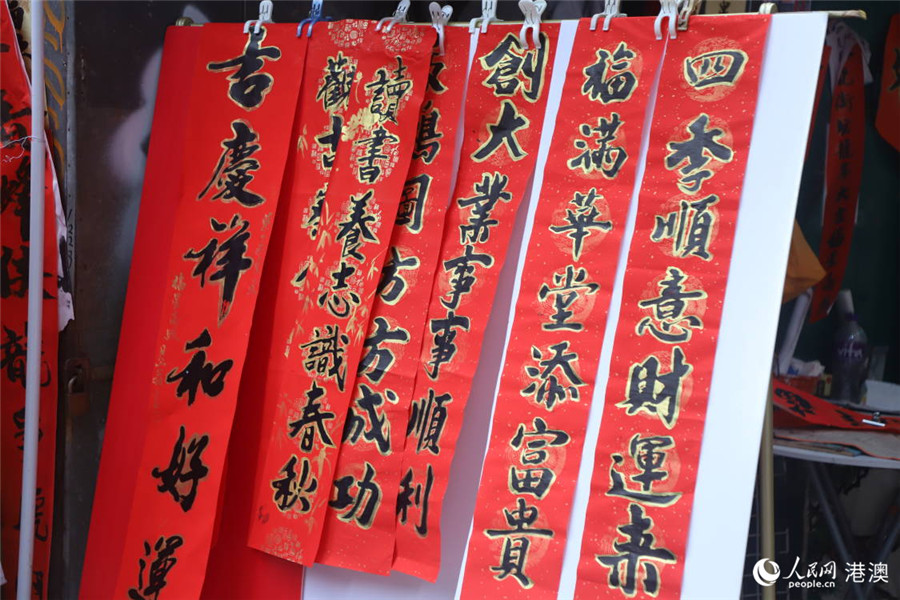 四季順意財運来
福滿華堂添富貴
創大業事事順利
圖方方成功
讀書養志識春秋
觀古
吉慶祥和好運
人民网 港澳
people.cn